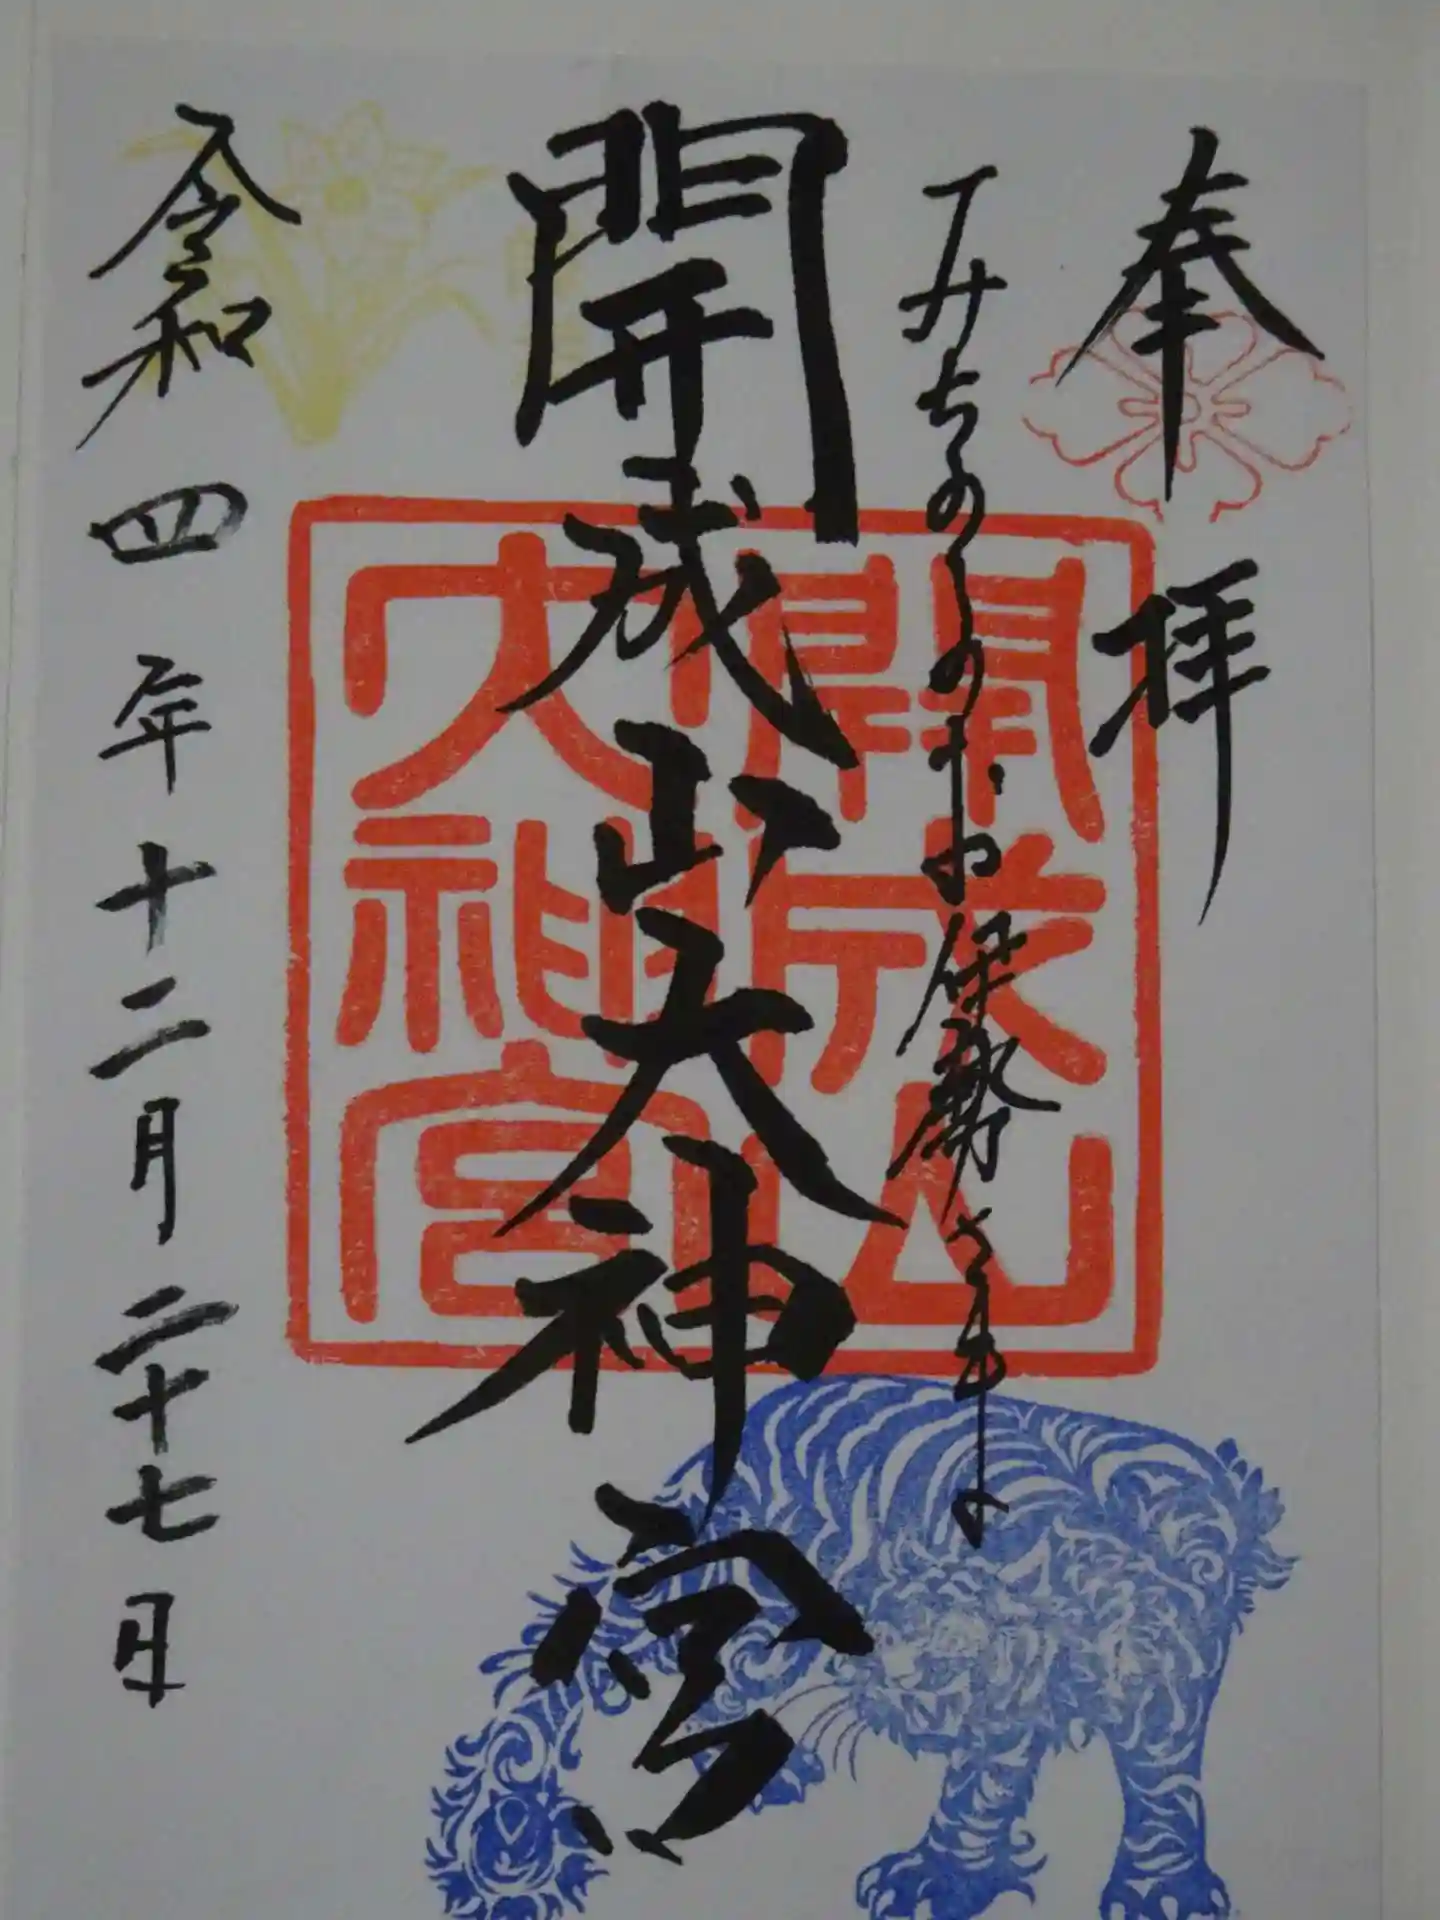 奉拝
「みちのくのお伊勢さま」
開成山大神宮
令和四年十二月二十七日
開成山
大神宮